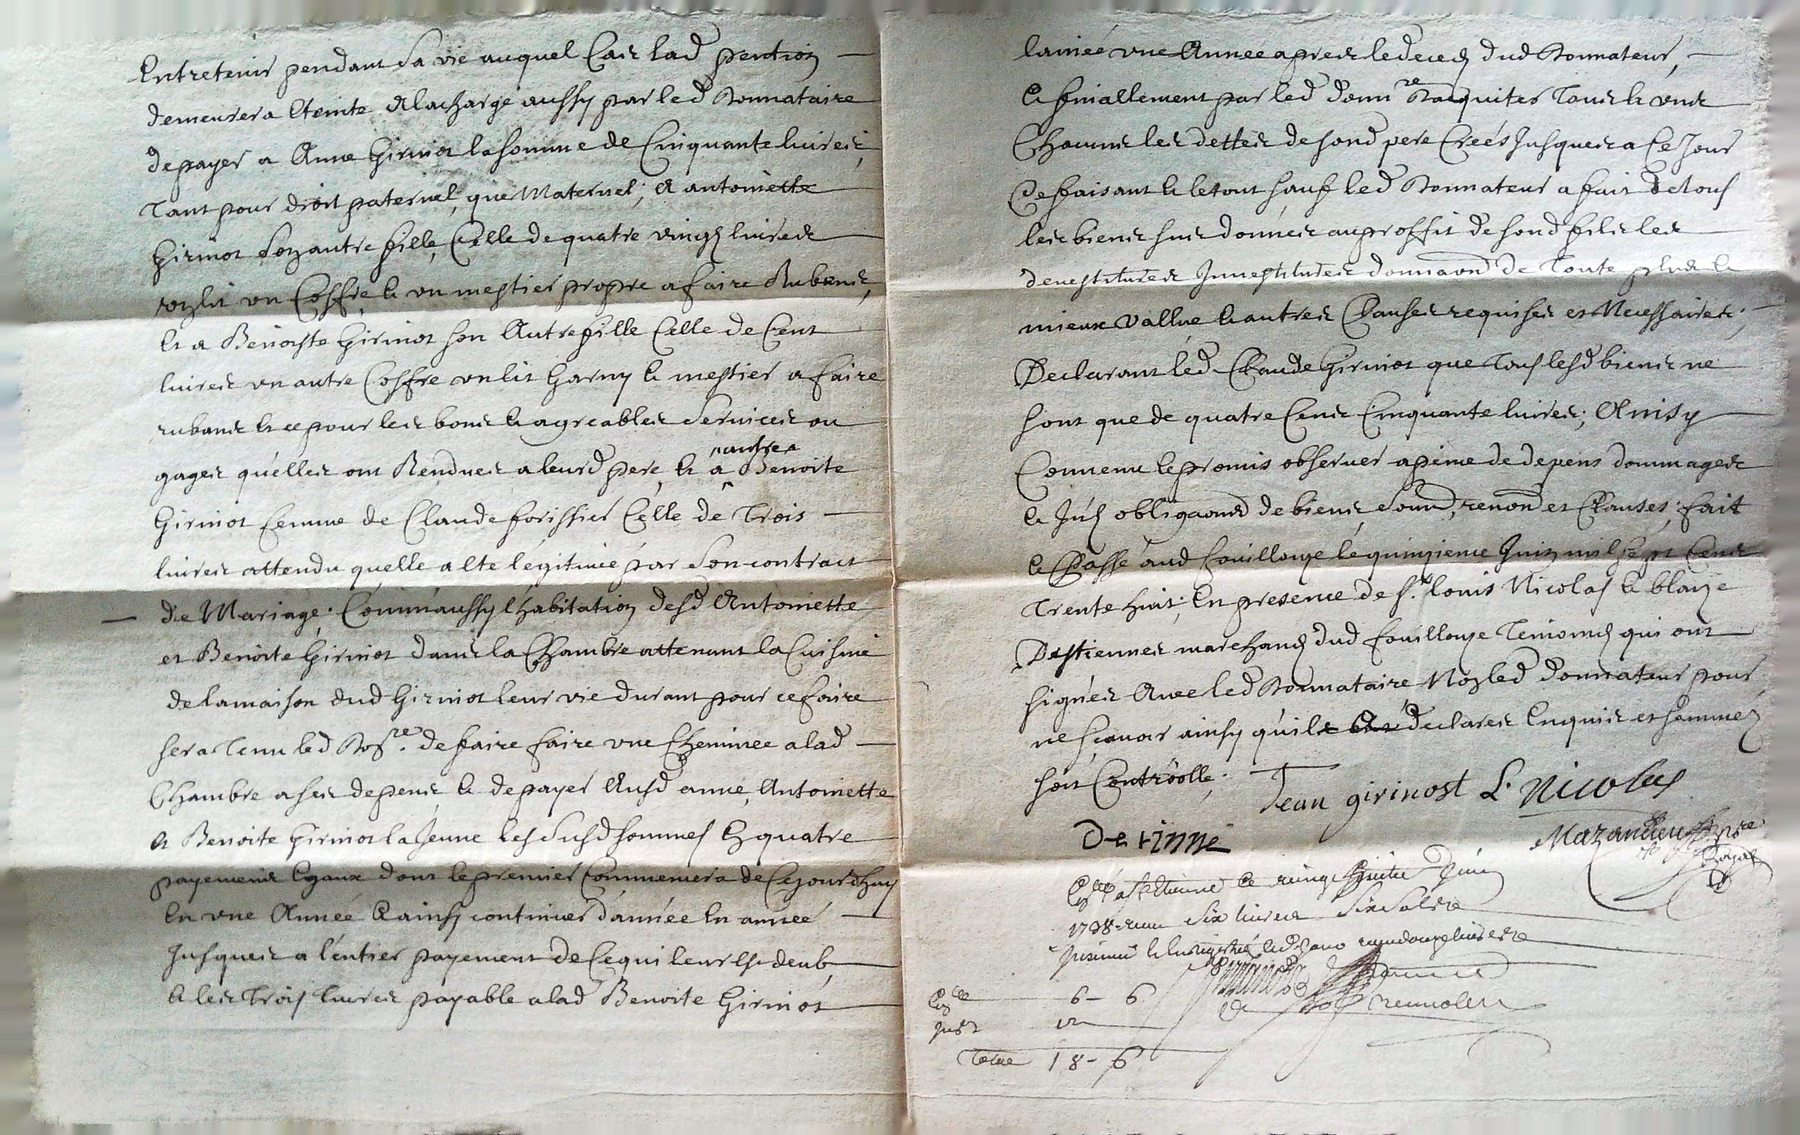 Entretenir pendant sa vie auquel Cas lad pention
demeurera Eteinte & la charge aussy par led Donnataire
de payer a Anne Girinot la somme de Cinquante livres,
Tant pour droit paternel, que Maternel; & antoinette
Girinot son autre fille, Celle de quatre vingt livres
un lit un Coffre, & un mestier propre a faire Rubans,
Et a Benoiste Girinot son Autre fille Celle de Cent
livres un autre Coffre un lit Garny & mestier a faire
rubans & ce pour les bons & agreables services ou
gages quelles ont Rendues a leurd pere, & a autre Benoite
Girinot femme de Claude forissier Celle de Trois
livres attendu quelle a Eté légitimée par son contract
de Mariage; Comm'aussy l'habitation desd Antoinette
et Benoite Girinot dans la Chambre attenant la Cuisine
de la maison dud Girinot leur vie durant pour ce faire
sera Tenu led Dore. de faire faire une Cheminée a lad
Chambre a ses depens, & de payer Ausd anne, Antoinette
& Benoite Girinot la Jeune les susd sommes En quatre
payements Egaux dont le premier Commencera de Cejourdhuy
En une Année & ainsy continuer d'année En année
Jusques a l'entier payement de Ce qui leur Est deub,
& les Trois livres payable a lad Benoite Girinot
lainée une Annee apres le deces dud Donnateur,
& finallement par led donnre d'acquiter Tous & uns
Chacuns les dettes de sond pere Creés Jusques a Ce Jour
Ce faisant & le tout sauf led Donnateur a fait de tous
les biens sus donnés au proffit de sond fils les
devestitures Investitures donnaon de Toute plus &
mieux vallue & autres Clauses requises et Necessaires;
Declarant led Claude Girinot que Tous lesd biens ne
sont que de quatre Cens Cinquante livres; Ainsy
Convenu & promis observer a peine de depens dommages
& Jnts obligaons de biens, soum, renon et Clauses; fait
& Passé aud fouillouze le quinzieme Juin mil sept Cens
Trente huit; En presence de sr. louis Nicolas & blaize
Destiennes marchands dud fouillouze Temoins qui ont
signés Avec led Donnataire Non led donnateur pour
ne sçavoir ainsy qu'il a declaré Enquis et sommez
soit Controolle;
Jean girinost L. Nicolas
Detinne
Mazandieu
Royal
a St Etienne Ce vingt huitie Juin
1738 six livres six sols
6 - 6
12
Total 18 - 6